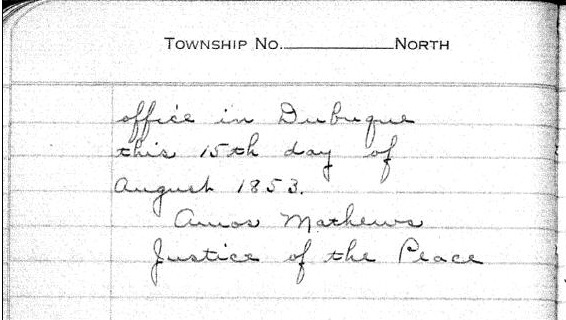 TOWNSHIP NO. NORTH
office in Dubuque
this 15th day of
August 1853.
Amos Mathews
Justice of the Peace